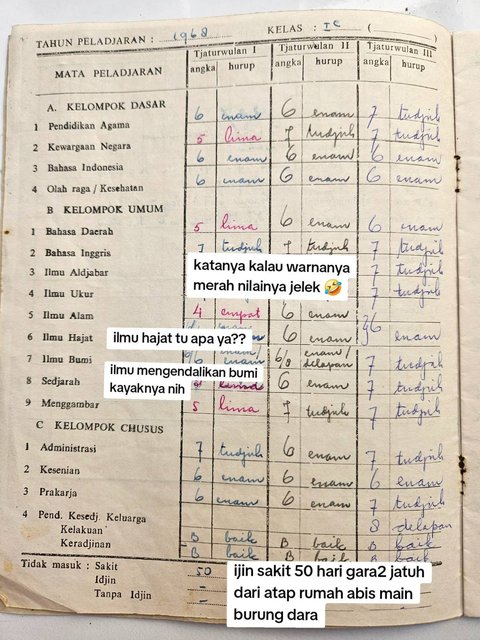 TAHUN PELADJARAN : 1968 KELAS : I C ( )
MATA PELADJARAN Tjaturwulan I Tjaturwulan II Tjaturwulan III
angka hurup angka hurup angka hurup
A. KELOMPOK DASAR
1 Pendidikan Agama 6 enam 6 enam 7 tudjuh
2 Kewargaan Negara 5 lima 7 tudjuh 7 tudjuh
3 Bahasa Indonesia 6 enam 6 enam 6 enam
4 Olah raga / Kesehatan 6 enam 6 enam 6 enam
B KELOMPOK UMUM
1 Bahasa Daerah 5 lima 6 enam 6 enam
2 Bahasa Inggris 7 tudjuh 7 tudjuh 7 tudjuh
3 Ilmu Aldjabar 7 tudjuh
katanya kalau warnanya
merah nilainya jelek 🤣
4 Ilmu Ukur 7 tudjuh
5 Ilmu Alam 4 empat 6 enam 6
ilmu hajat tu apa ya??
6 Ilmu Hajat 6 enam enam
7 Ilmu Bumi 6/8 enam/ delapan 7 tudjuh
ilmu mengendalikan bumi
kayaknya nih
8 Sedjarah lima 6 enam 7 tudjuh
9 Menggambar 5 lima 7 tudjuh 7 tudjuh
C KELOMPOK CHUSUS
1 Administrasi 7 tudjuh 6 enam 7 tudjuh
2 Kesenian 6 enam 6 enam 6 enam
3 Prakarja 6 enam 6 enam 7 tudjuh
4 Pend. Kesedj. Keluarga 8 delapan
Kelakuan B baik B baik B baik
Keradjinan B baik B baik B baik
Tidak masuk : Sakit 50
Idjin -
Tanpa Idjin -
ijin sakit 50 hari gara2 jatuh
dari atap rumah abis main
burung dara